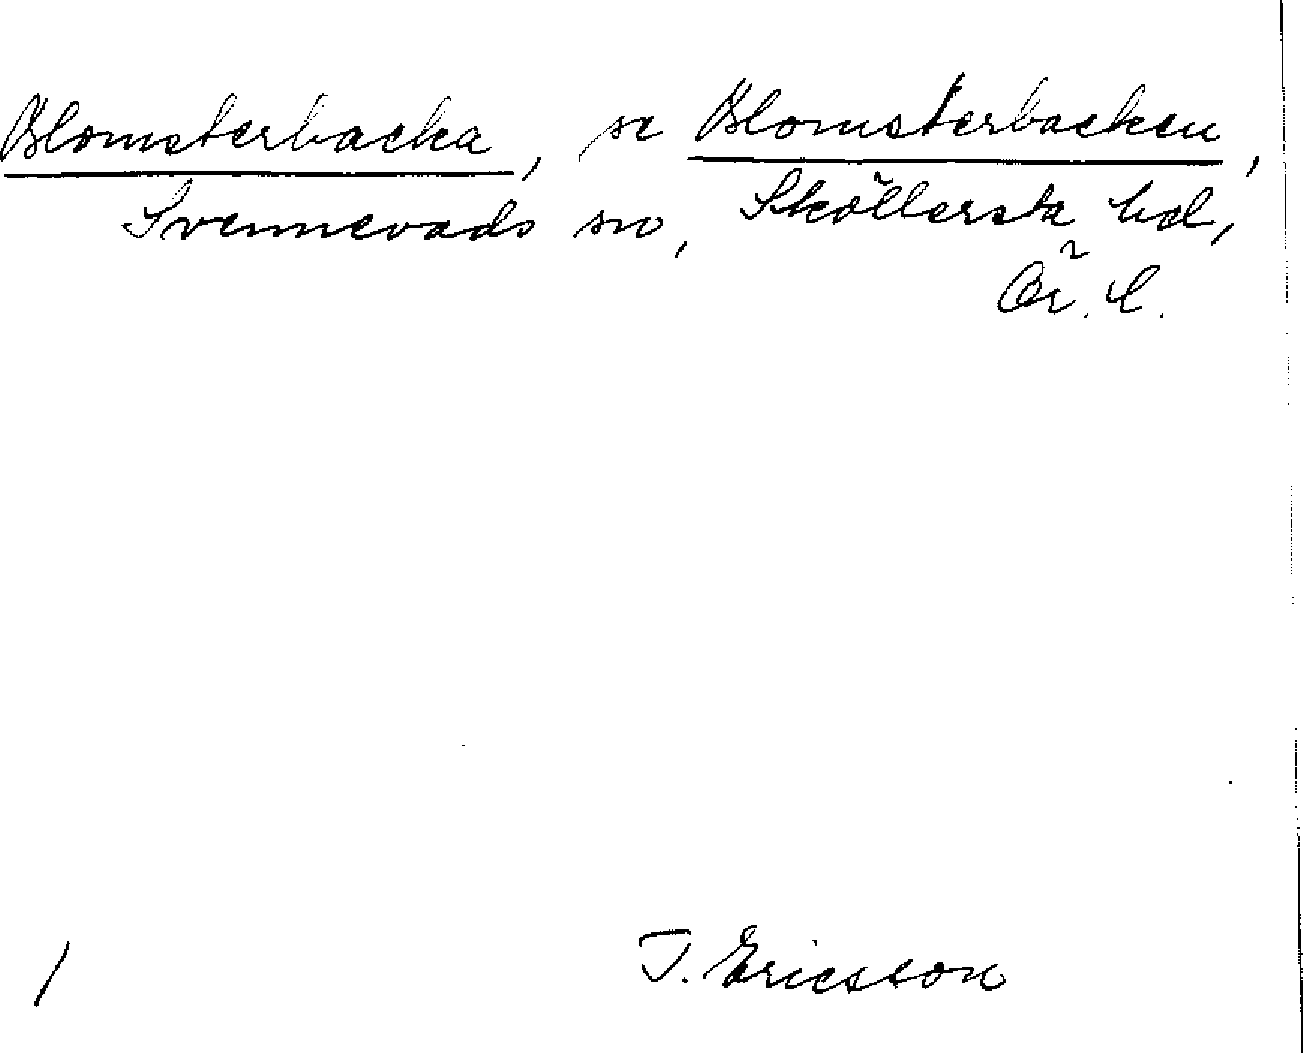 Blomsterbacka, se Blomsterbacken,
Svennevads sn, Sköllersta hd,
Ör. l.
/ T. Ericsson